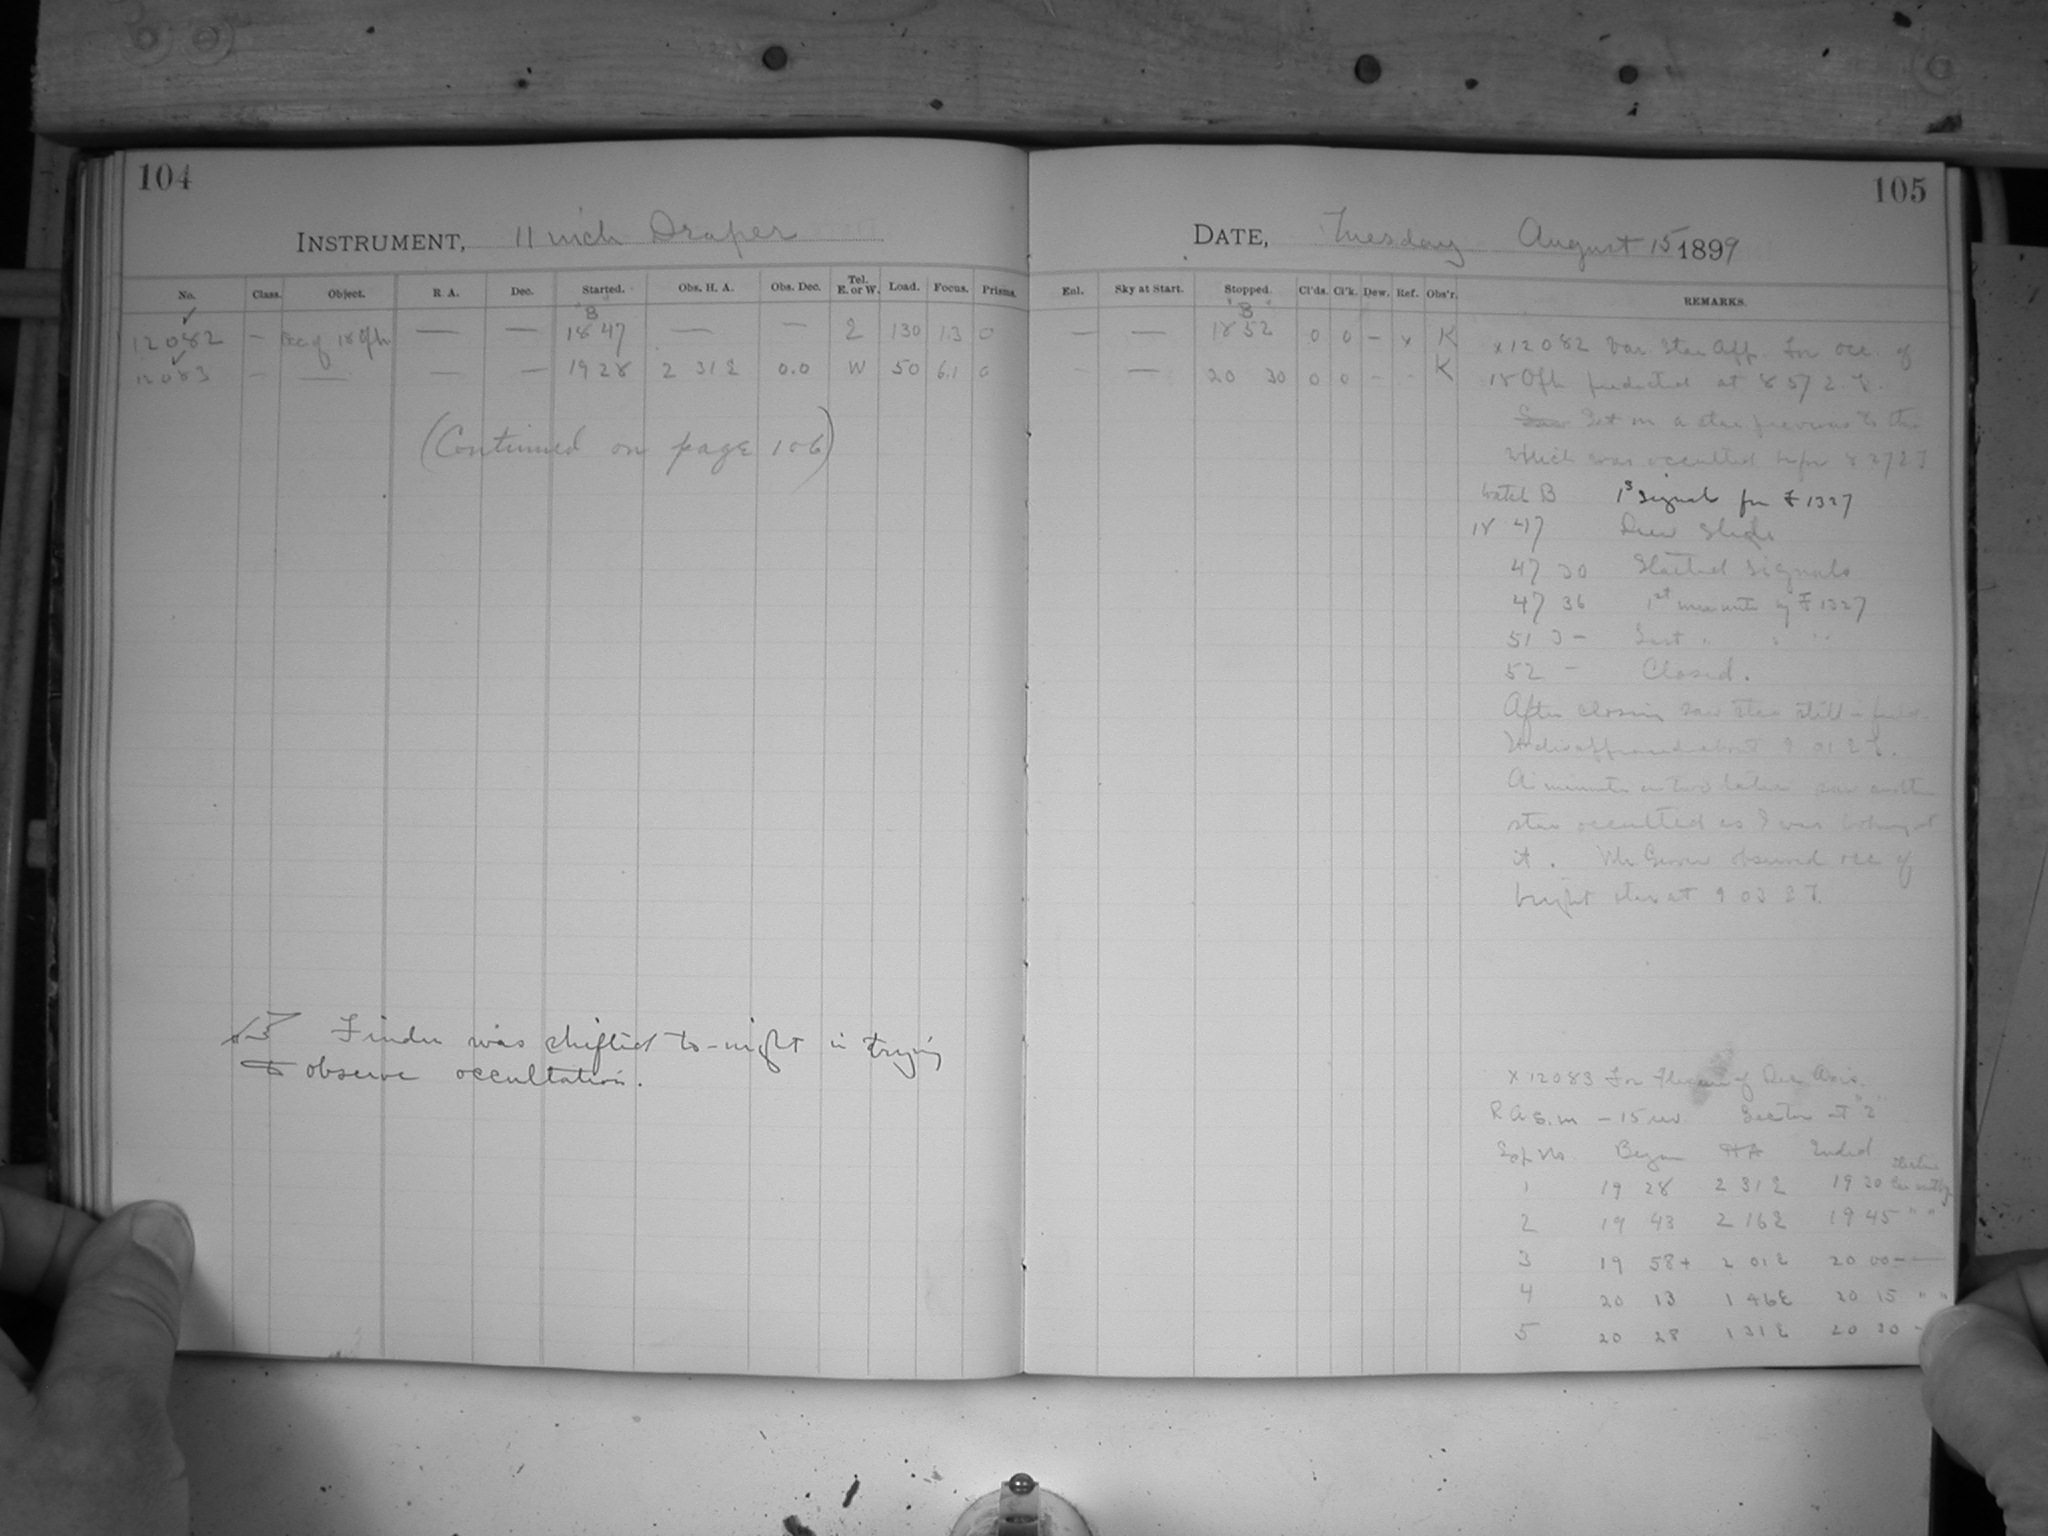 104
INSTRUMENT, 11 inch Draper
No. Class. Object. R. A. Dec. Started. Obs. H. A. Obs. Dec. Tel. E. or W. Load. Focus. Prisms.
"B"
12082 — Occ of 18 Oph — — 18 47 — — E 130 1.3 0
12083 — — — — 19 28 2 31 E 0.0 W 50 6.1 0
(Continued on page 106)
Finder was shifted to-night in trying
to observe occultation.
105
DATE, Tuesday August 15 1899
Enl. Sky at Start. Stopped. Cl'ds. Cl'k. Dew. Ref. Obs'r. REMARKS.
"B"
— — 18 52 0 0 – x K
— — 20 30 0 0 – – K
x 12082 Var. Star App. For occ of
18 Oph predicted at 8 57 2.
Set on a star previous to this
which was occulted before 8 27 2
Watch B 1st signal for 1327
18 47 Drew slide
47 30 Started signals
47 36 1st minute of 1327
51 3– Last " " "
52 – Closed.
After closing saw star still in field.
It disappeared about 9 01
A minute or two later saw another
star occulted as I was looking at
it. observed occ of
bright star at 9 03
x 12083 For Flexure of Dec Axis.
R A S. m – 15 rev. Sector at "2"
Exp No. Began H A Ended
1 19 28 2 31 E 19 30
2 19 43 2 16 E 19 45 " "
3 19 58+ 2 01 E 20 00 –
4 20 13 1 46 E 20 15 " "
5 20 28 1 31 E 20 30 –